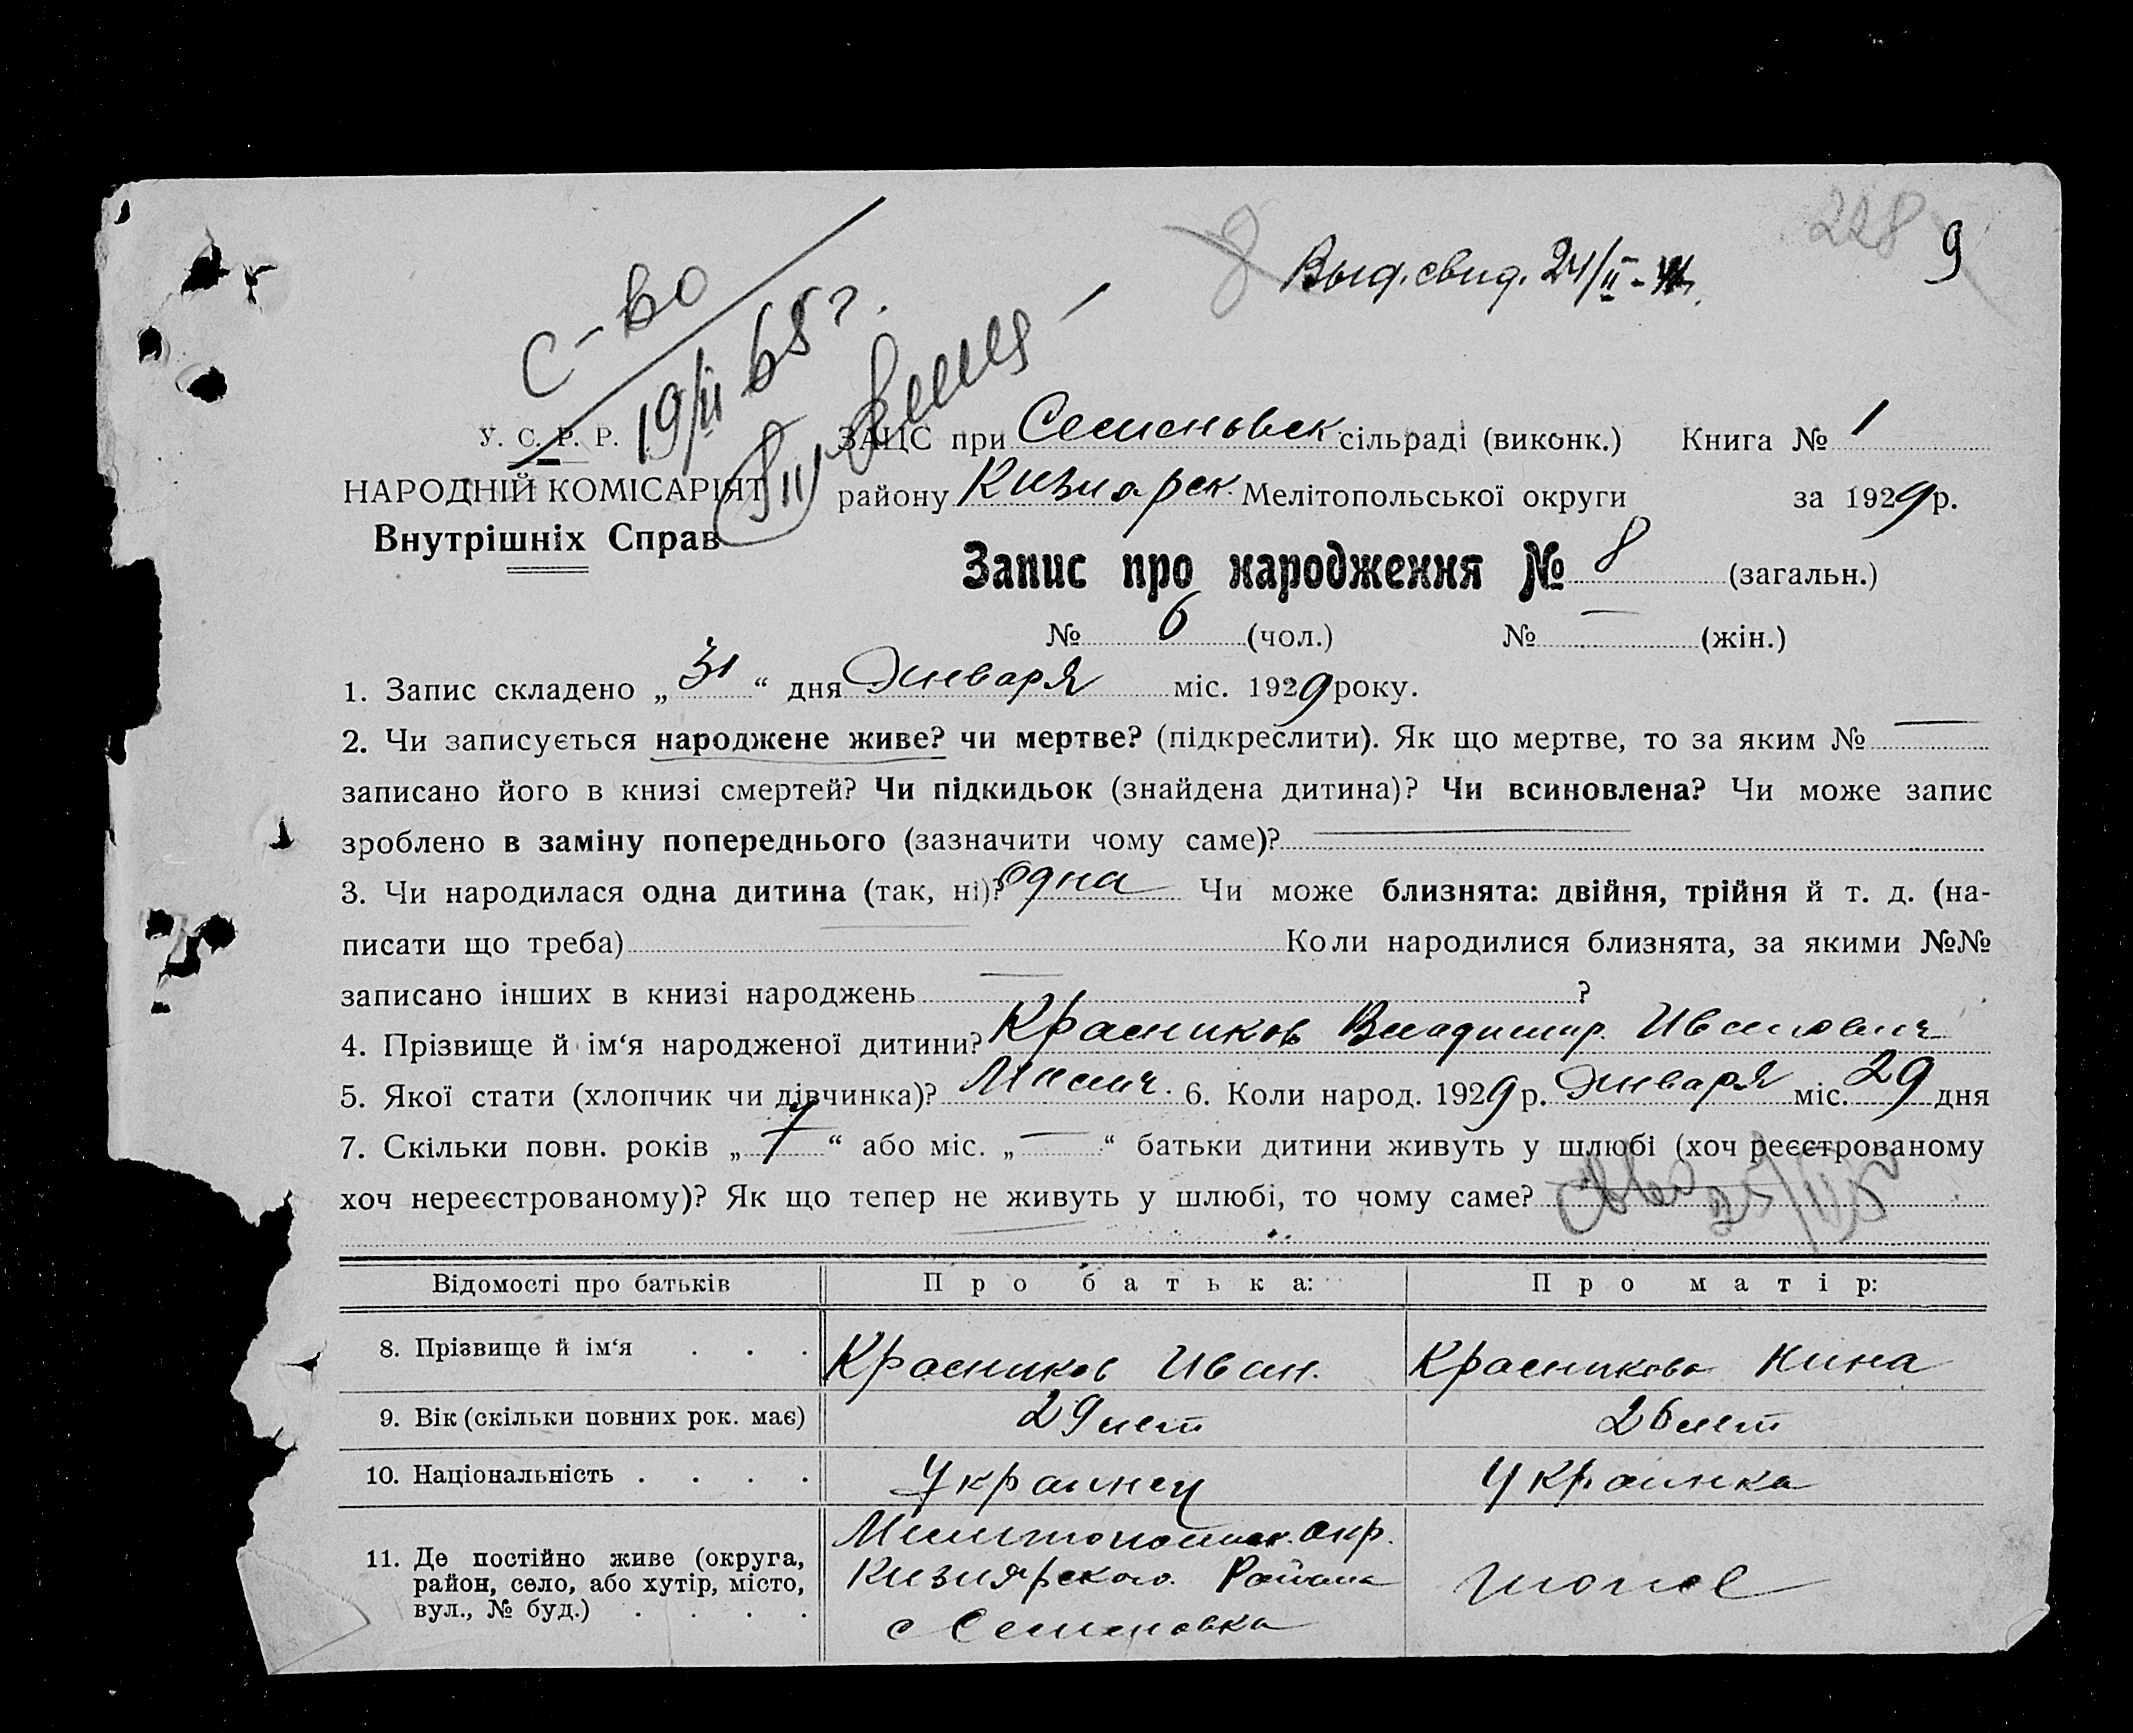 228
9
8
Выд. свид. 24/II-
С-во
19/II 68 г.
У. С. Р. Р.
НАРОДНІЙ КОМІСАРІЯТ
Внутрішніх Справ
ЗАЦС при Семеновск сільраді (виконк.) Книга № 1
району Кизиярск. Мелітопольської округи за 1929 р.
Запис про народження № 8 (загальн.)
№ 6 (чол.) № — (жін.)
1. Запис складено „31“ дня Января міс. 1929 року.
2. Чи записується народжене живе? чи мертве? (підкреслити). Як що мертве, то за яким № —
записано його в книзі смертей? Чи підкидьок (знайдена дитина)? Чи всиновлена? Чи може запис
зроблено в заміну попереднього (зазначити чому саме)? —
3. Чи народилася одна дитина (так, ні)? одна Чи може близнята: двійня, трійня й т. д. (на-
писати що треба) — Коли народилися близнята, за якими №№
записано інших в книзі народжень — ?
4. Прізвище й ім‘я народженої дитини? Красников Владимир Иванович
5. Якої стати (хлопчик чи дівчинка)? Мальч. 6. Коли народ. 1929 р. Января міс. 29 дня
7. Скільки повн. років „7“ або міс. „—“ батьки дитини живуть у шлюбі (хоч реєстрованому
хоч нереєстрованому)? Як що тепер не живуть у шлюбі, то чому саме?
Відомості про батьків Про батька: Про матір:
8. Прізвище й ім‘я . . . Красников Иван. Красникова Нина
9. Вік (скільки повних рок. має) 29 лет 26 лет
10. Національність . . . . Украинец Украинка
11. Де постійно живе (округа,
район, село, або хутір, місто,
вул., № буд.) . . . .
Мелитопольск. Окр.
Кизиярского Района
с Семеновка
тоже